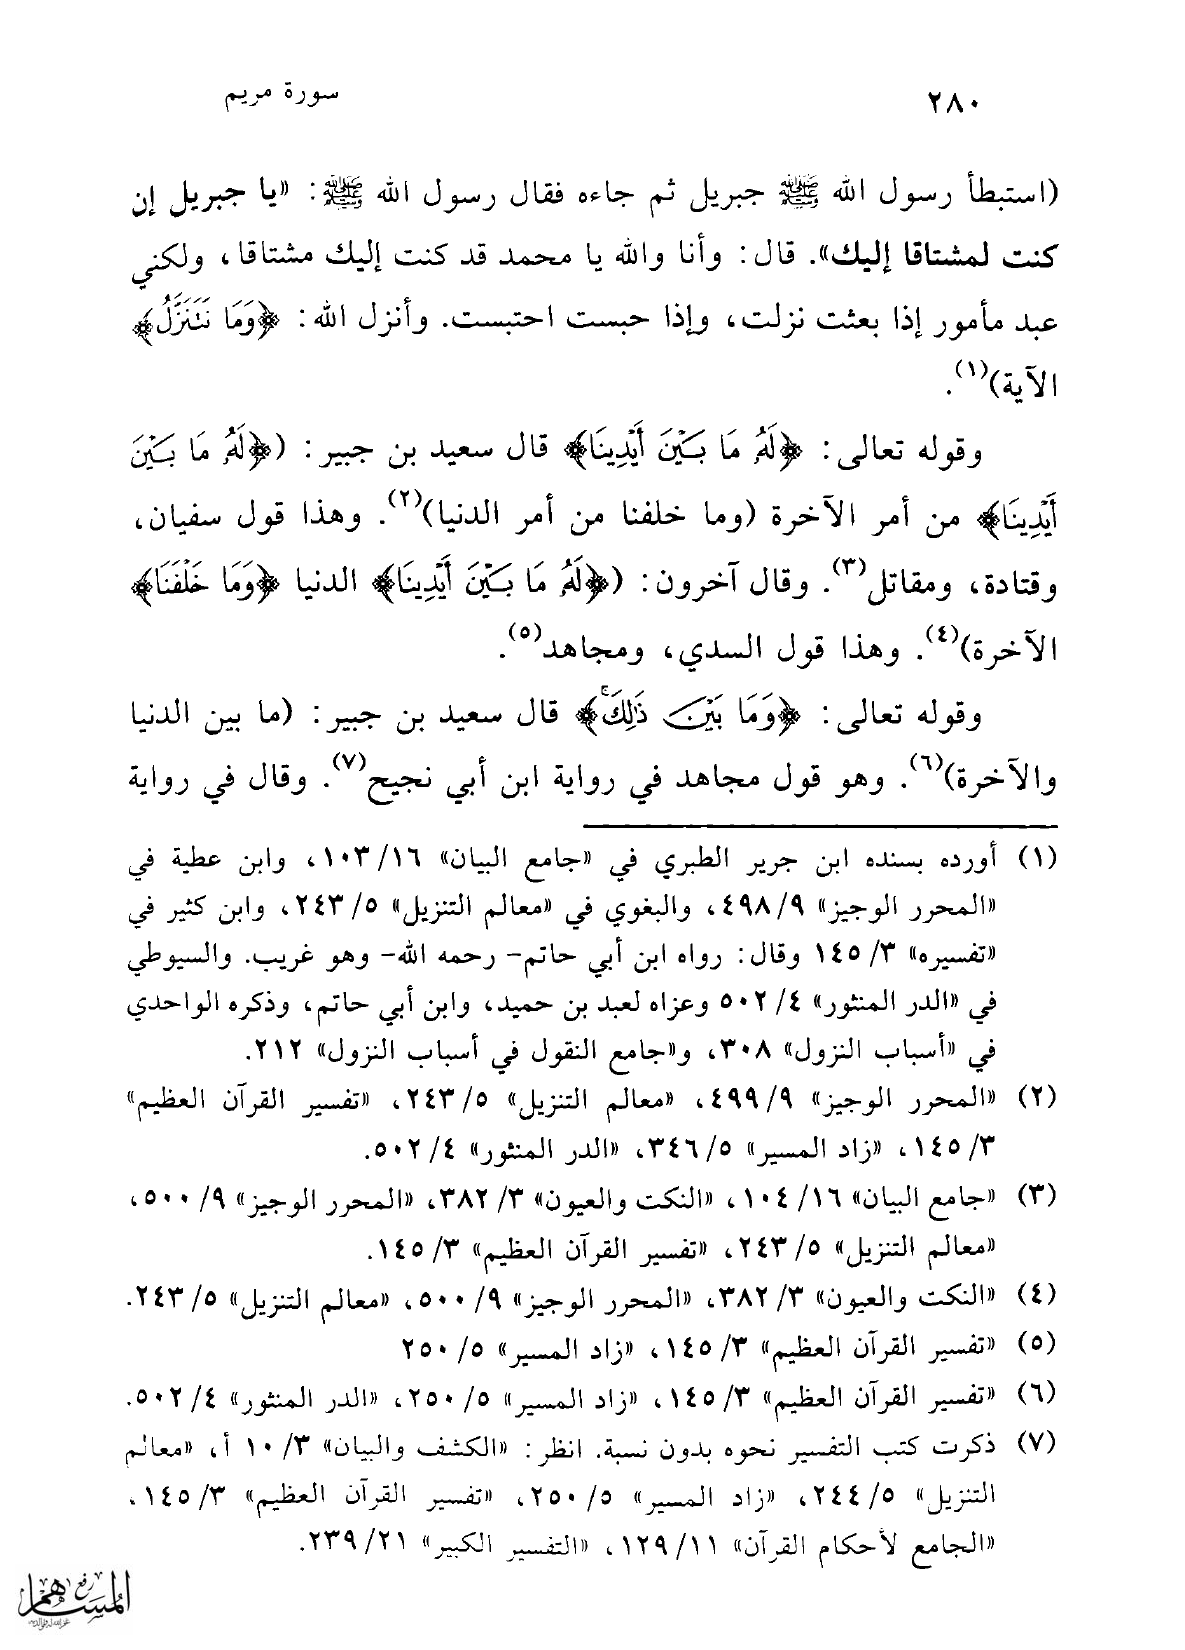 ٢٨٠
سورة مريم
(استبطأ رسول الله ﷺ جبريل ثم جاءه فقال رسول الله ﷺ: «يا جبريل إن
كنت لمشتاقا إليك». قال: وأنا والله يا محمد قد كنت إليك مشتاقا، ولكني
عبد مأمور إذا بعثت نزلت، وإذا حبست احتبست. وأنزل الله: ﴿وَمَا نَتَنَزَّلُ﴾
الآية)(١).
وقوله تعالى: ﴿لَهُ مَا بَيْنَ أَيْدِينَا﴾ قال سعيد بن جبير: (﴿لَهُ مَا بَيْنَ
أَيْدِينَا﴾ من أمر الآخرة (وما خلفنا من أمر الدنيا)(٢). وهذا قول سفيان،
وقتادة، ومقاتل(٣). وقال آخرون: (﴿لَهُ مَا بَيْنَ أَيْدِينَا﴾ الدنيا ﴿وَمَا خَلْفَنَا﴾
الآخرة)(٤). وهذا قول السدي، ومجاهد(٥).
وقوله تعالى: ﴿وَمَا بَيْنَ ذَٰلِكَ ۚ﴾ قال سعيد بن جبير: (ما بين الدنيا
والآخرة)(٦). وهو قول مجاهد في رواية ابن أبي نجيح(٧). وقال في رواية
(١) أورده بسنده ابن جرير الطبري في «جامع البيان» ١٦/ ١٠٣، وابن عطية في
«المحرر الوجيز» ٩/ ٤٩٨، والبغوي في «معالم التنزيل» ٥/ ٢٤٣، وابن كثير في
«تفسيره» ٣/ ١٤٥ وقال: رواه ابن أبي حاتم- رحمه الله- وهو غريب. والسيوطي
في «الدر المنثور» ٤/ ٥٠٢ وعزاه لعبد بن حميد، وابن أبي حاتم، وذكره الواحدي
في «أسباب النزول» ٣٠٨، و«جامع النقول في أسباب النزول» ٢١٢.
(٢) «المحرر الوجيز» ٩/ ٤٩٩، «معالم التنزيل» ٥/ ٢٤٣، «تفسير القرآن العظيم»
٣/ ١٤٥، «زاد المسير» ٥/ ٣٤٦، «الدر المنثور» ٤/ ٥٠٢.
(٣) «جامع البيان» ١٦/ ١٠٤، «النكت والعيون» ٣/ ٣٨٢، «المحرر الوجيز» ٩/ ٥٠٠،
«معالم التنزيل» ٥/ ٢٤٣، «تفسير القرآن العظيم» ٣/ ١٤٥.
(٤) «النكت والعيون» ٣/ ٣٨٢، «المحرر الوجيز» ٩/ ٥٠٠، «معالم التنزيل» ٥/ ٢٤٣.
(٥) «تفسير القرآن العظيم» ٣/ ١٤٥، «زاد المسير» ٥/ ٢٥٠
(٦) «تفسير القرآن العظيم» ٣/ ١٤٥، «زاد المسير» ٥/ ٢٥٠، «الدر المنثور» ٤/ ٥٠٢.
(٧) ذكرت كتب التفسير نحوه بدون نسبة. انظر: «الكشف والبيان» ٣/ ١٠ أ، «معالم
التنزيل» ٥/ ٢٤٤، «زاد المسير» ٥/ ٢٥٠، «تفسير القرآن العظيم» ٣/ ١٤٥،
«الجامع لأحكام القرآن» ١١/ ١٢٩، «التفسير الكبير» ٢١/ ٢٣٩.